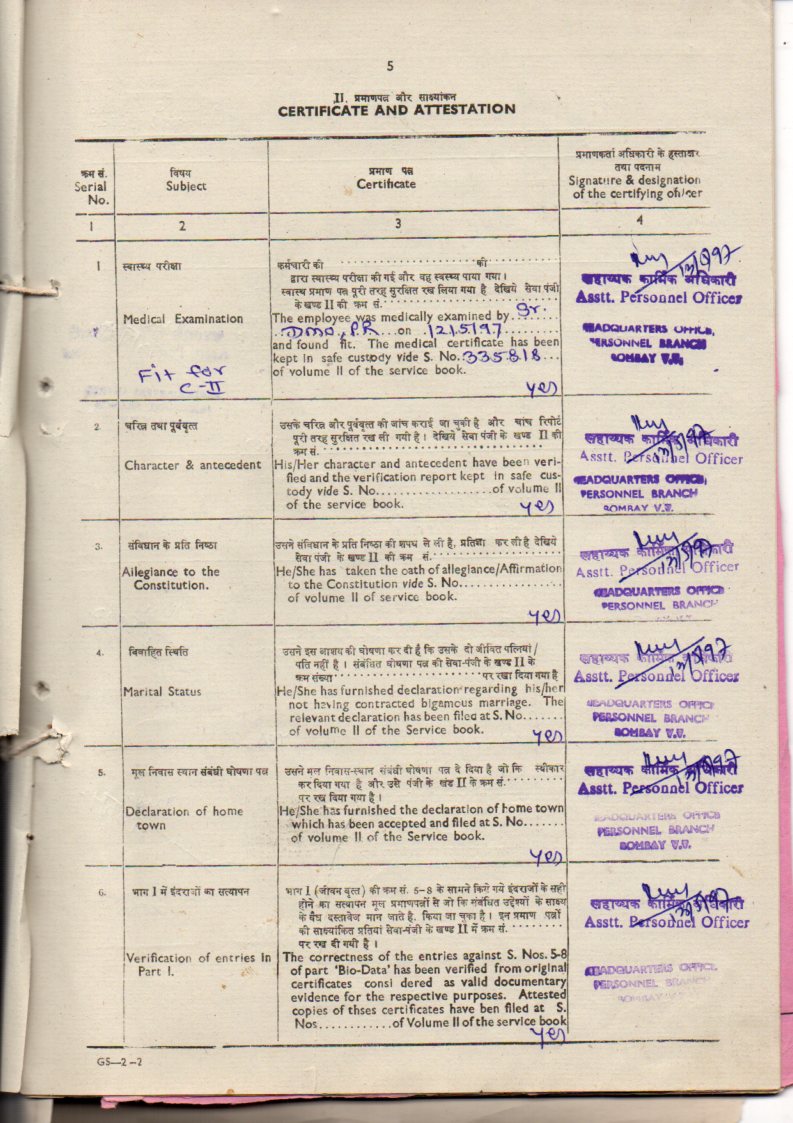 5
II. प्रमाणपत्र और साक्ष्यांकन
CERTIFICATE AND ATTESTATION
क्रम सं.
Serial
No.
विषय
Subject
प्रमाण पत्र
Certificate
प्रमाणकर्ता अधिकारी के हस्ताक्षर
तथा पदनाम
Signature & designation
of the certifying officer
1
2
3
4
1
स्वास्थ्य परीक्षा
Medical Examination
Fit for
C-II
कर्मचारी की .................... की ..............
द्वारा स्वास्थ्य परीक्षा की गई और वह स्वस्थ्य पाया गया।
स्वास्थ प्रमाण पत्र पूरी तरह सुरक्षित रख लिया गया है देखिये सेवा पंजी
के खण्ड II की क्रम सं. ..............................
The employee was medically examined by Sr.
DMO, P.R. on 12.5.97
and found fit. The medical certificate has been
kept in safe custody vide S. No. 335818
of volume II of the service book.
yes
सहाय्यक कार्मिक अधिकारी
Asstt. Personnel Officer
HEADQUARTERS OFFICE,
PERSONNEL BRANCH
BOMBAY V.T.
2.
चरित्र तथा पूर्ववृत्त
Character & antecedent
उसके चरित्र और पूर्ववृत्त की जांच कराई जा चुकी है और जांच रिपोर्ट
पूरी तरह सुरक्षित रख ली गयी है। देखिये सेवा पंजी के खण्ड II की
क्रम सं. ..............................
His/Her character and antecedent have been veri-
fied and the verification report kept in safe cus-
tody vide S. No..................of volume II
of the service book.
yes
सहाय्यक कार्मिक अधिकारी
Asstt. Personnel Officer
HEADQUARTERS OFFICE,
PERSONNEL BRANCH
BOMBAY V.T.
3.
संविधान के प्रति निष्ठा
Allegiance to the
Constitution.
उसने संविधान के प्रति निष्ठा की शपथ ले ली है, प्रतिज्ञा कर ली है देखिये
सेवा पंजी के खण्ड II की क्रम सं. ....................
He/She has taken the oath of allegiance/Affirmation
to the Constitution vide S. No................
of volume II of service book.
yes
सहाय्यक कार्मिक अधिकारी
Asstt. Personnel Officer
HEADQUARTERS OFFICE
PERSONNEL BRANCH
4.
विवाहित स्थिति
Marital Status
उसने इस आशय की घोषणा कर दी है कि उसके दो जीवित पत्नियां/
पति नहीं है। संबंधित घोषणा पत्र की सेवा-पंजी के खण्ड II के
क्रम संख्या .................... पर रखा दिया गया है
He/She has furnished declaration regarding his/her
not having contracted bigamous marriage. The
relevant declaration has been filed at S. No.......
of volume II of the Service book.
yes
सहाय्यक कार्मिक अधिकारी
Asstt. Personnel Officer
HEADQUARTERS OFFICE
PERSONNEL BRANCH
BOMBAY V.T.
5.
मूल निवास स्थान संबंधी घोषणा पत्र
Declaration of home
town
उसने मूल निवास-स्थान संबंधी घोषणा पत्र दे दिया है जो कि स्वीकार
कर दिया गया है और उसे पंजी के खंड II के क्रम सं. ............
पर रख दिया गया है।
He/She has furnished the declaration of home town
which has been accepted and filed at S. No.......
of volume II of the Service book.
yes
सहाय्यक कार्मिक अधिकारी
Asstt. Personnel Officer
HEADQUARTERS OFFICE
PERSONNEL BRANCH
BOMBAY V.T.
6.
भाग I में इंदराजों का सत्यापन
Verification of entries in
Part I.
भाग I (जीवन वृत्त) की क्रम सं. 5-8 के सामने किये गये इंदराजों के सही
होने का सत्यापन मूल प्रमाणपत्रों से जो कि संबंधित उद्देश्यों के साक्ष्य
के वैध दस्तावेज माने जाते है, किया जा चुका है। इन प्रमाण पत्रों
की साक्ष्यांकित प्रतियां सेवा-पंजी के खण्ड II में क्रम सं. ..........
पर रख दी गयी है।
The correctness of the entries against S. Nos. 5-8
of part 'Bio-Data' has been verified from original
certificates consi dered as valid documentary
evidence for the respective purposes. Attested
copies of thses certificates have ben filed at S.
Nos............of Volume II of the service book
yes
सहाय्यक कार्मिक अधिकारी
Asstt. Personnel Officer
HEADQUARTERS OFFICE,
PERSONNEL BRANCH
BOMBAY
GS—2—2